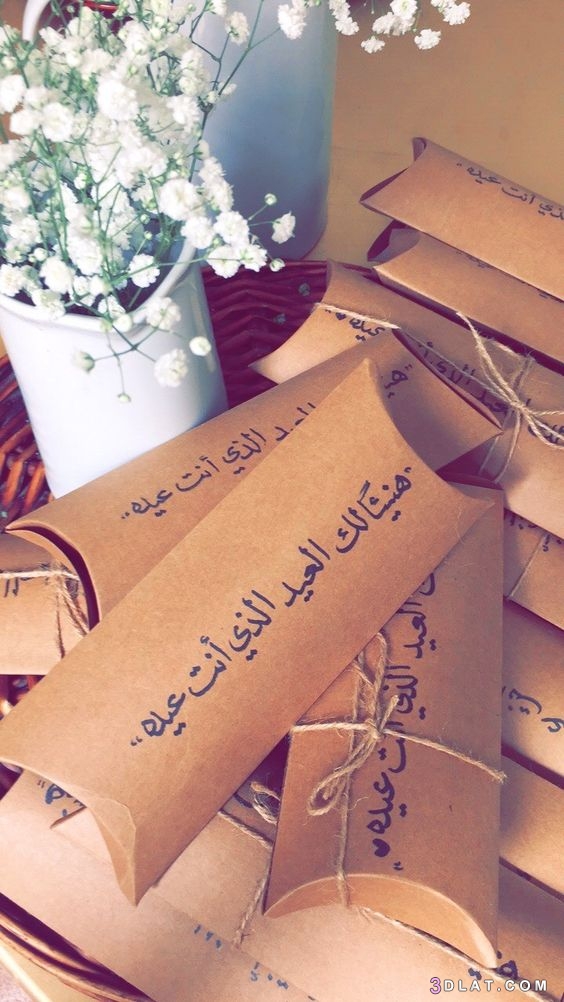 أنت عيده
العيد الذي أنت عيده"
"هنيئاً لك العيد الذي أنت عيده"
العيد الذي أنت عيده"
3DLAT.COM